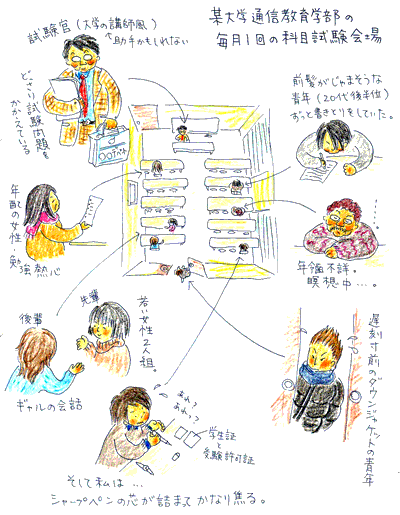 某大学通信教育学部の
毎月1回の科目試験会場
試験官(大学の講師風)
助手かもしれない
どっさり試験問題を
かかえている
前髪がじゃまそうな
青年(20代後半位)
ずっと書きとりをしていた。
年配の女性
勉強熱心
年齢不詳。
瞑想中…。
後輩
先輩
若い女性2人組。
ギャルの会話
遅刻寸前のダウンジャケットの青年
あれ?
あれ?
学生証
と
受験許可証
そして私は…
シャープペンの芯が詰まってかなり焦る。